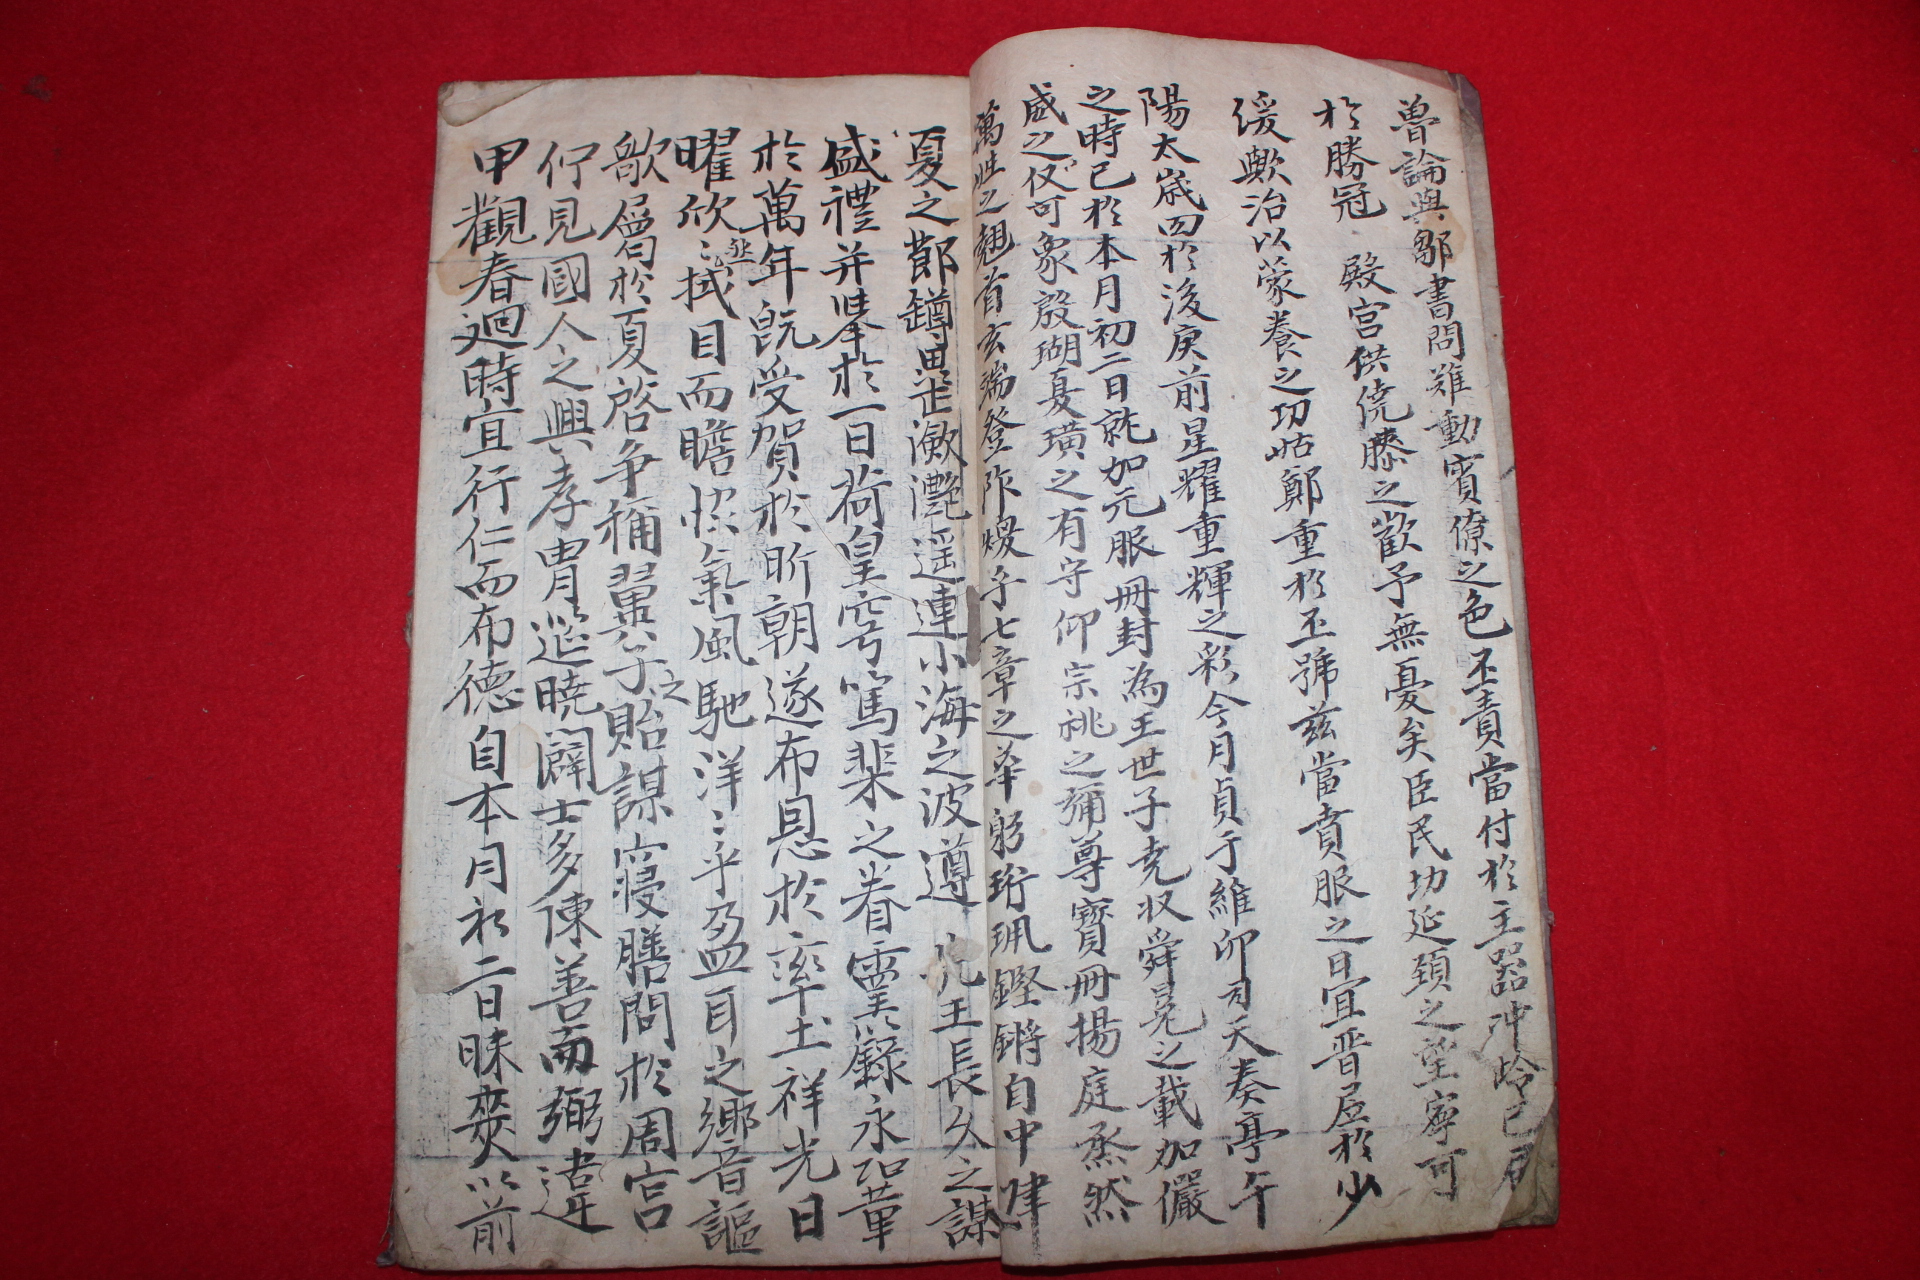 魯論與鄒書問難動賓僚之色丕責當付於主器冲齡已
於勝冠 殿宮供繞膝之歡予無憂矣臣民切延頸之望寧可
緩歟治以蒙養之功姑鄭重於丕號茲當賁服之日宜晋居於少
陽太歲回於後庚前星耀重輝之彩今月貞于維卯司天奏亭午
之時已於本月初二日就加元服冊封為王世子堯収舜冕之載加儼
盛之仪可象殷瑚夏璜之有守仰宗祧之彌尊寶冊揚庭烝然
萬姓之翹首玄端登阼煥乎七章之 躬珩珮鏗鏘自中
夏之 罇 瀲灔遥連小海之波遵 先王長久之謨
盛禮并擧於一日荷皇穹篤棐之眷靈籙永
於萬年旣受賀於昕朝遂布恩於率土祥光日
曜欣欣拭目而瞻 氣風馳洋洋乎盈耳之鄕音謳
歌屬於夏啓爭稱翼子之貽謀寢膳問於周宮
佇見國人之興孝冑筵曉闢士多陳善而弼違
甲觀春廻時宜行仁而布德自本月初二日昧爽以前